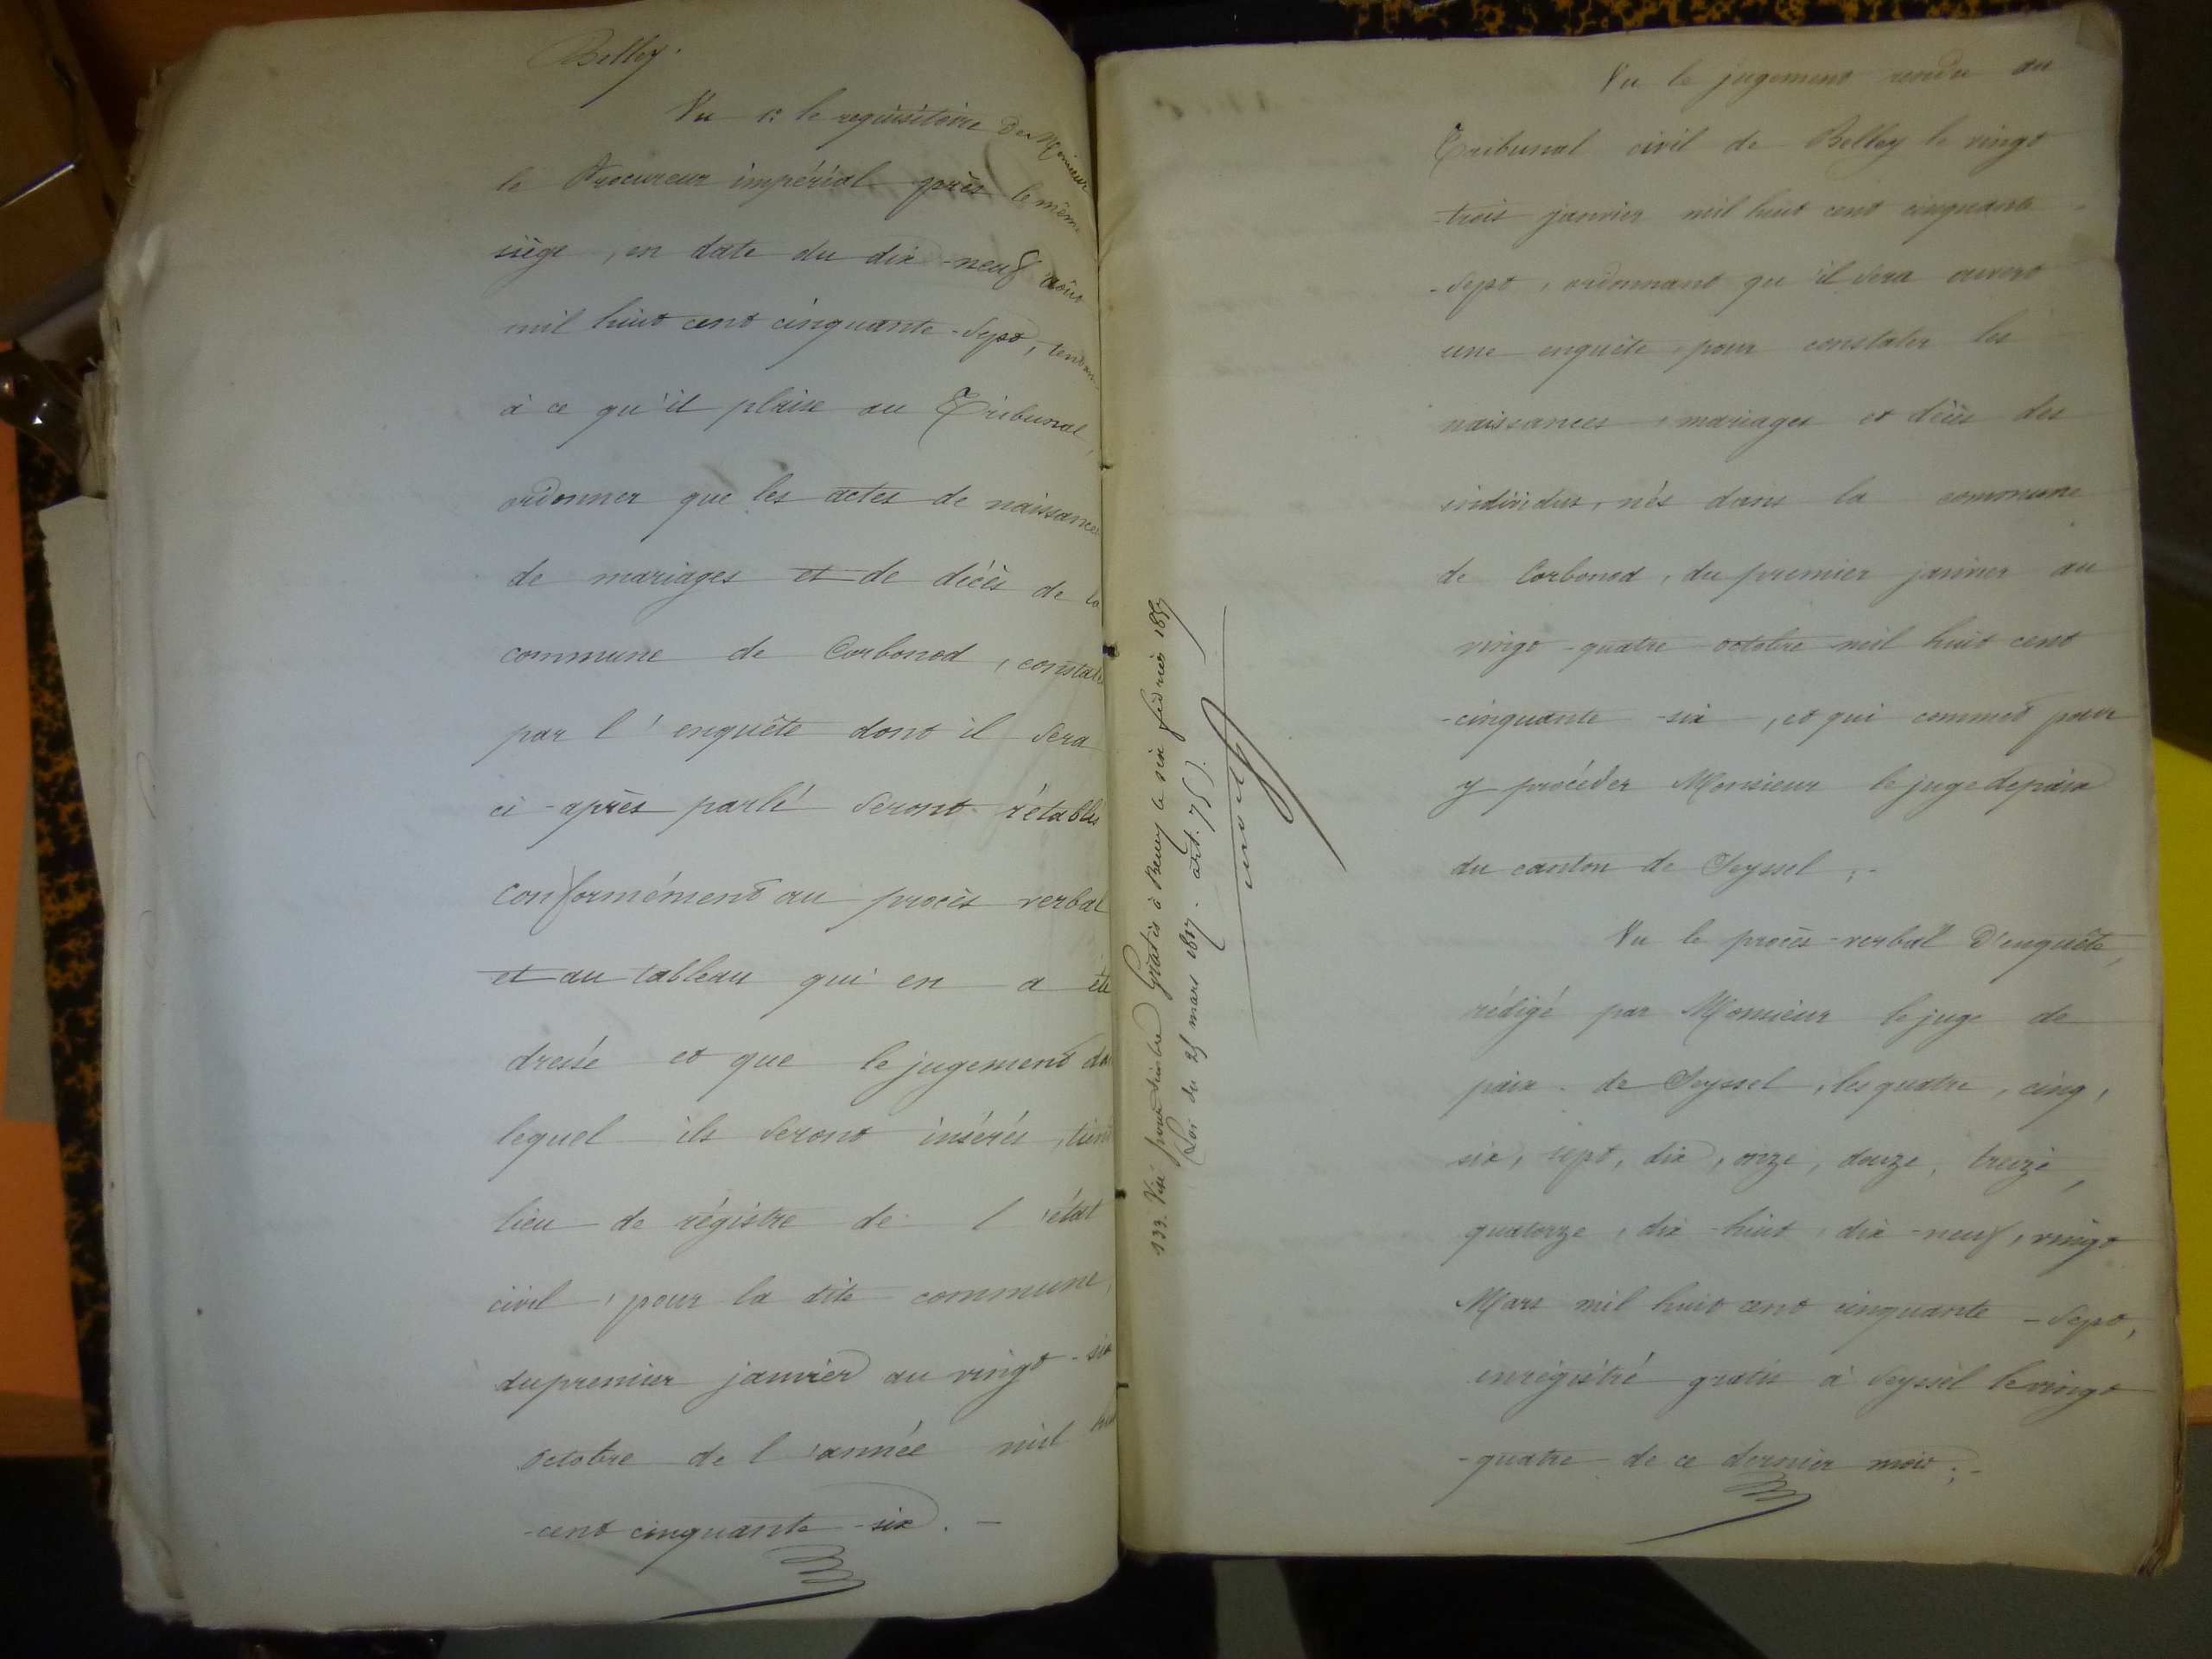 Belley.
Vu 1º le requisitoire de Monsieur
le Procureur impérial près le même
siège, en date du dix-neuf août
mil huit cent cinquante-sept, tendant
à ce qu'il plaise au Tribunal,
ordonner que les actes de naissances
de mariages et de décès de la
commune de Corbonod, constatés
par l'enquête dont il sera
ci-après parlé seront rétablis
conformément au procès verbal
et au tableau qui en a été
dressé et que le jugement dans
lequel ils seront insérés, tien
lieu de régistre de l'état
civil, pour la dite commune,
du premier janvier au vingt-six
octobre de l'année mil huit
-cent cinquante-six. -
133. Visé pour timbre Gratis à Belley le six février 1857
(Loi du 25 mars 1817 - art. 75).
Vu le jugement rendu au
Tribunal civil de Belley le vingt
-trois janvier mil huit cent cinquante
-sept, ordonnant qu'il sera ouvert
une enquête, pour constater les
naissances, mariages et décès des
individus, nés dans la commune
de Corbonod, du premier janvier au
vingt-quatre octobre mil huit cent
-cinquante-six, et qui commet pour
y procéder Monsieur le juge de paix
du canton de Seyssel;-
Vu le procès-verbal d'enquête,
rédigé par Monsieur le juge de
paix de Seyssel, les quatre, cinq,
six, sept, dix, onze, douze, treize,
quatorze, dix-huit, dix-neuf, vingt
Mars mil huit cent cinquante-sept,
enrégistré gratis à Seyssel le vingt
-quatre de ce dernier mois;-